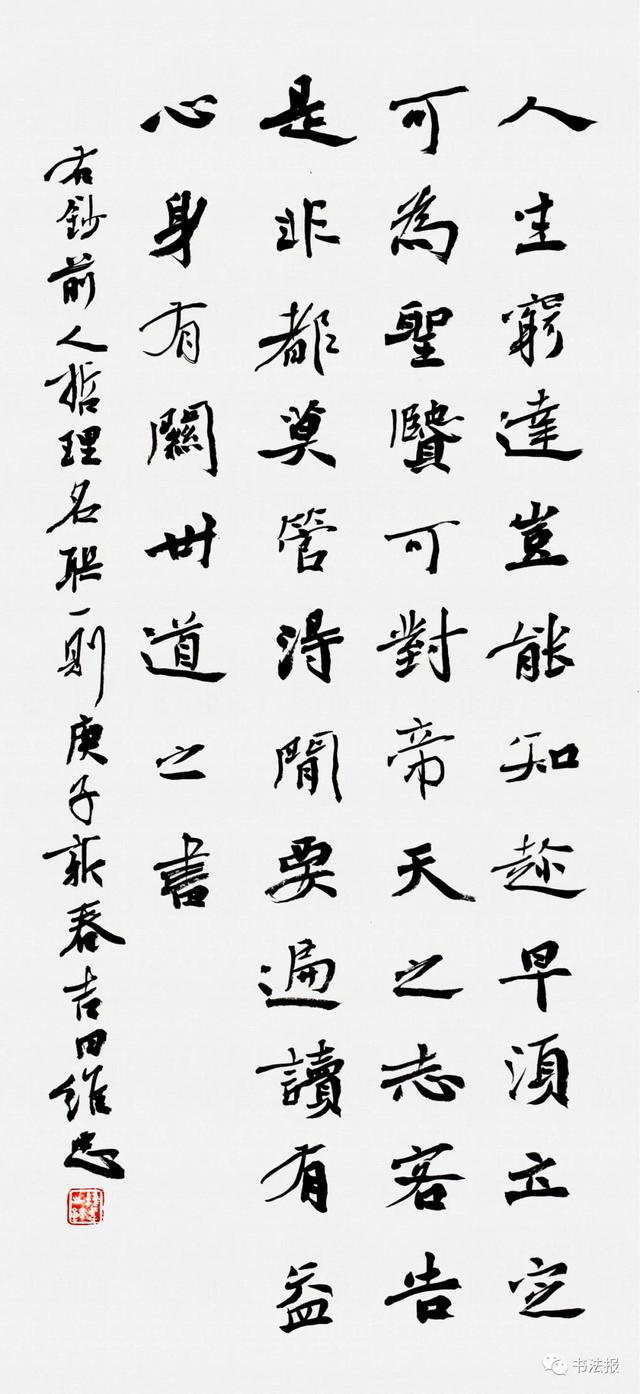 人生窮達豈能知趁早須立定
可為聖賢可對帝天之志客告
是非都莫管得閒要遍讀有益
心身有關世道之書
右鈔前人哲理名联一則庚子新春吉田維忠
书法报